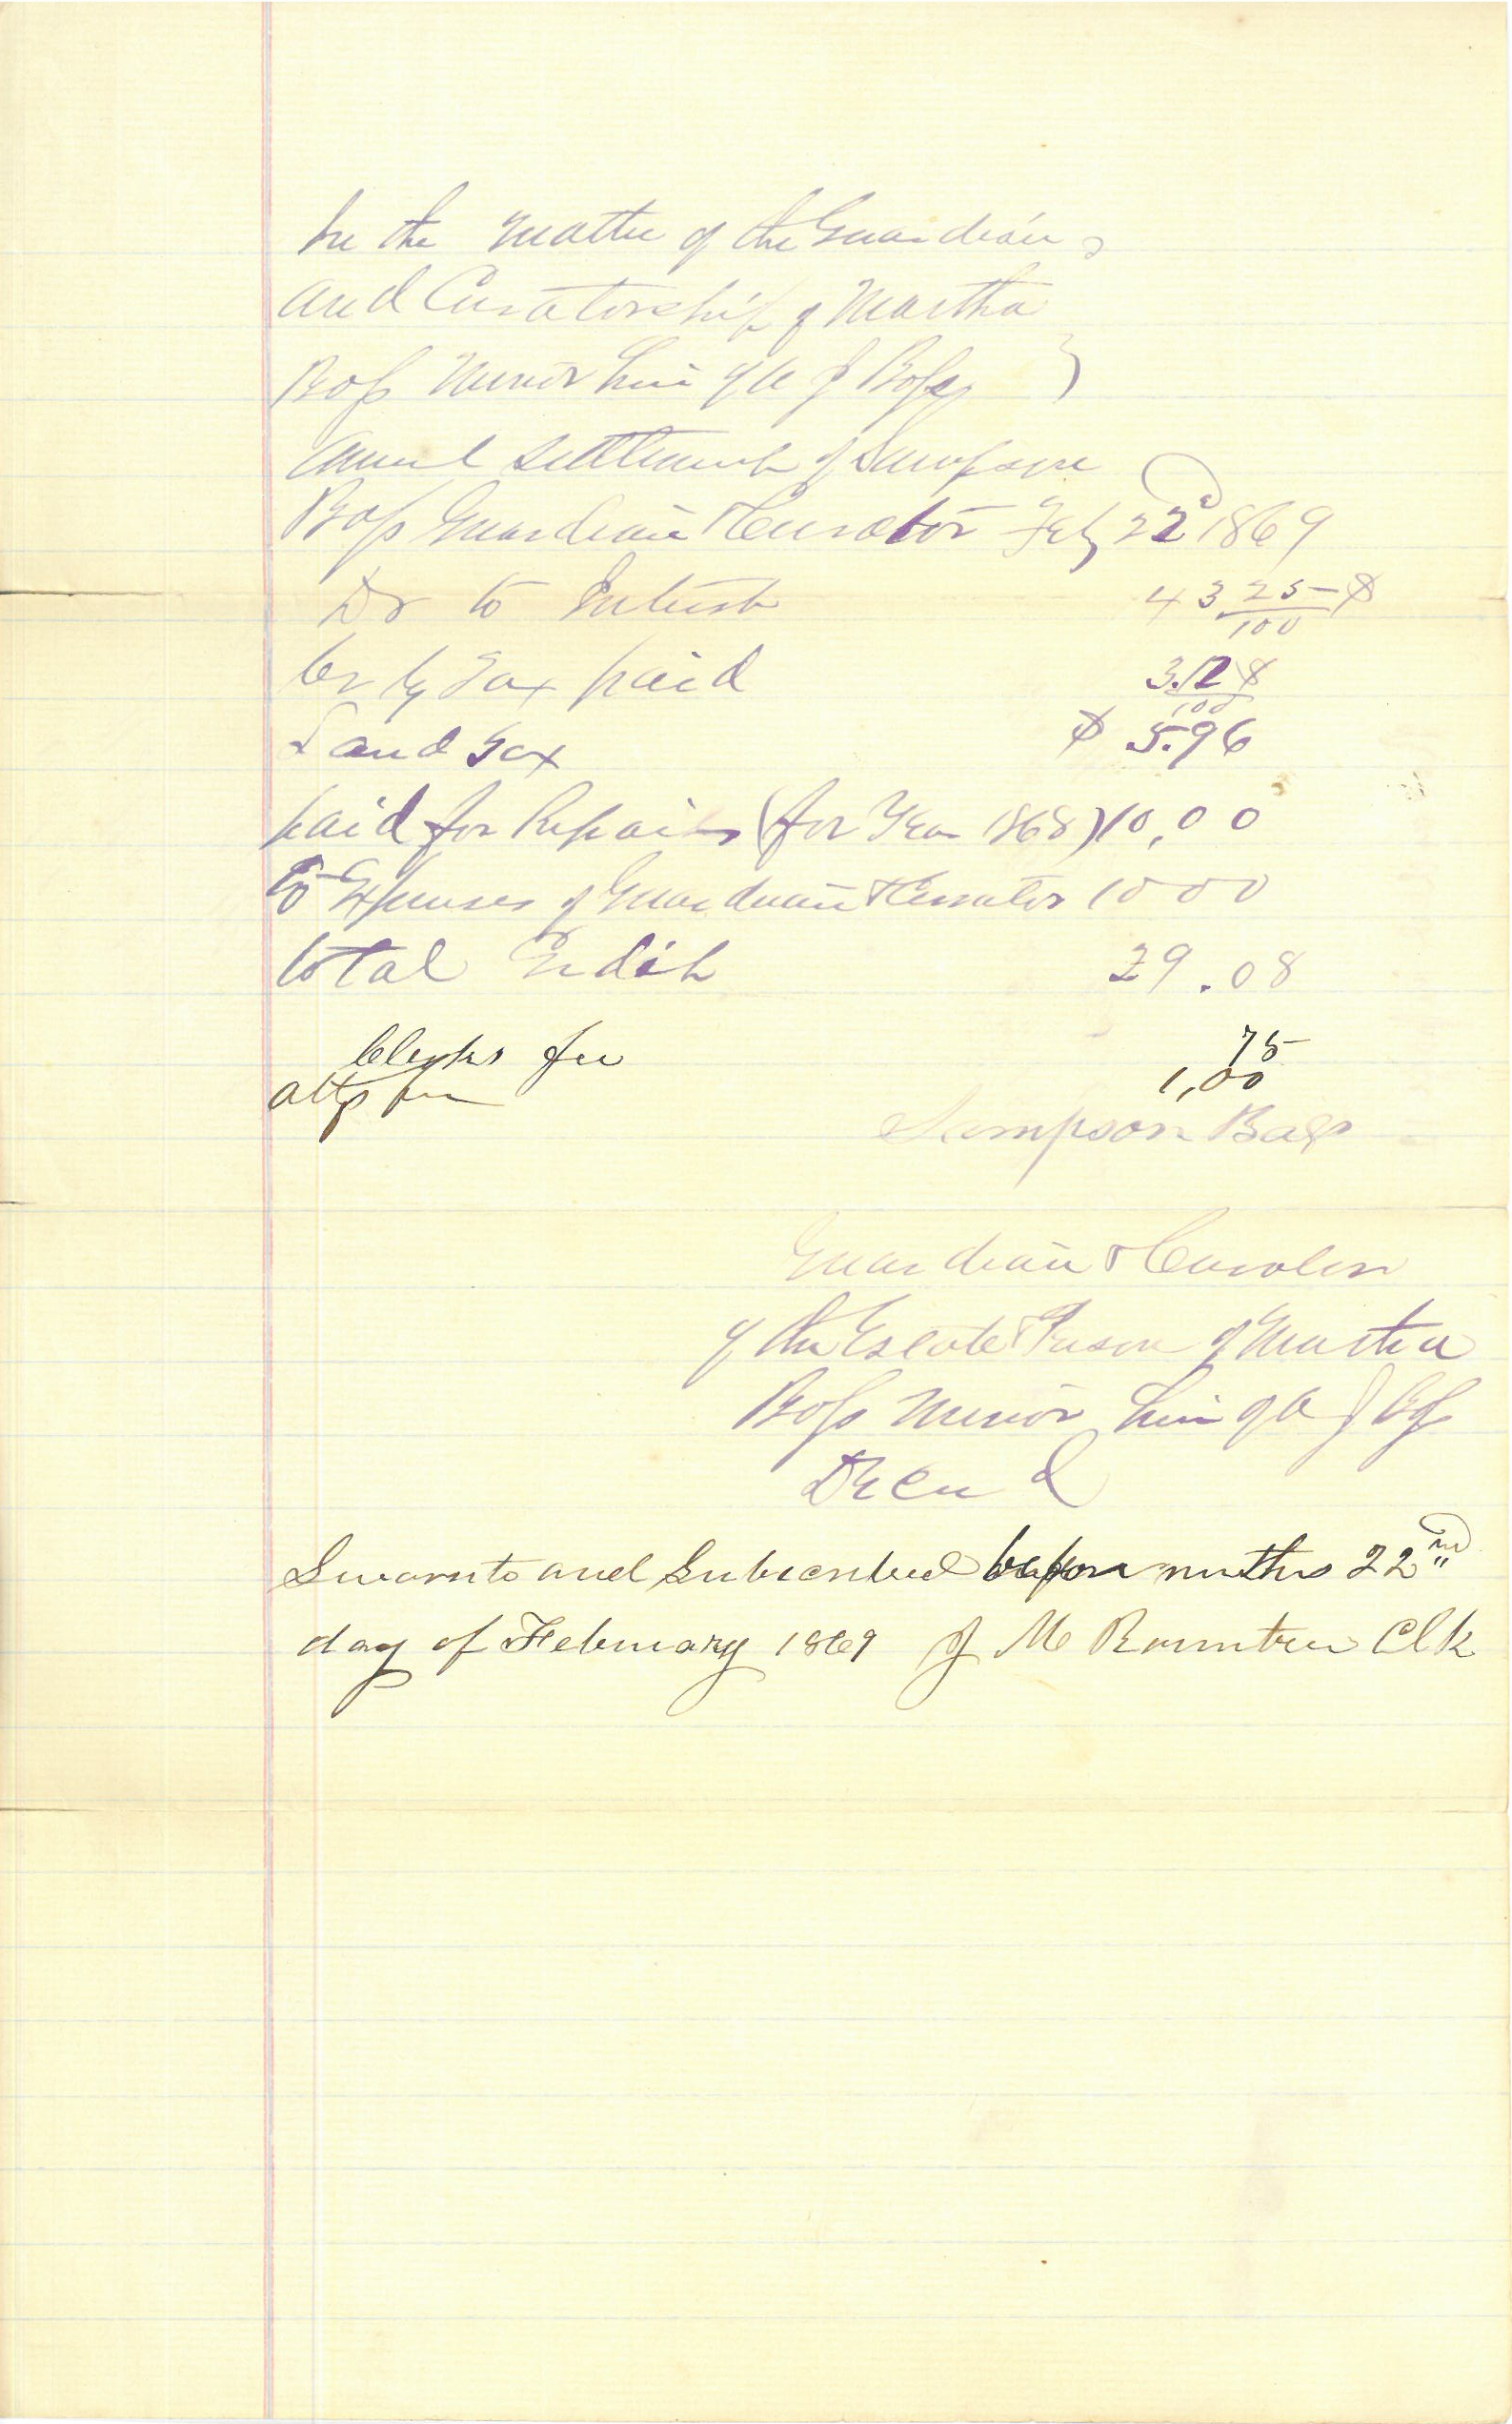 In the matter of the Guardian
and Curatorship of Martha
Bass minor heir of A J Bass
annual settlement of Sampson
Bass Guardian & Curator Feby 22d 1869
Dr to Interest 43 25/100 $
Cr by Tax paid 3.12/100 $
Land Tax $ 5.96
paid for Repairs (for Year 1868) 10,00
To Expenses of Guardian & Curator 10 00
total Credit 29.08
Clerks fee 75
atty fee 1,00
Sampson Bass
Guardian & Curator
of the Estate & Person of Martha
Bass minor heir of A J Bass
Decd
Sworn to and Subscribed before me this 22nd
day of February 1869 J M Rountree Clk